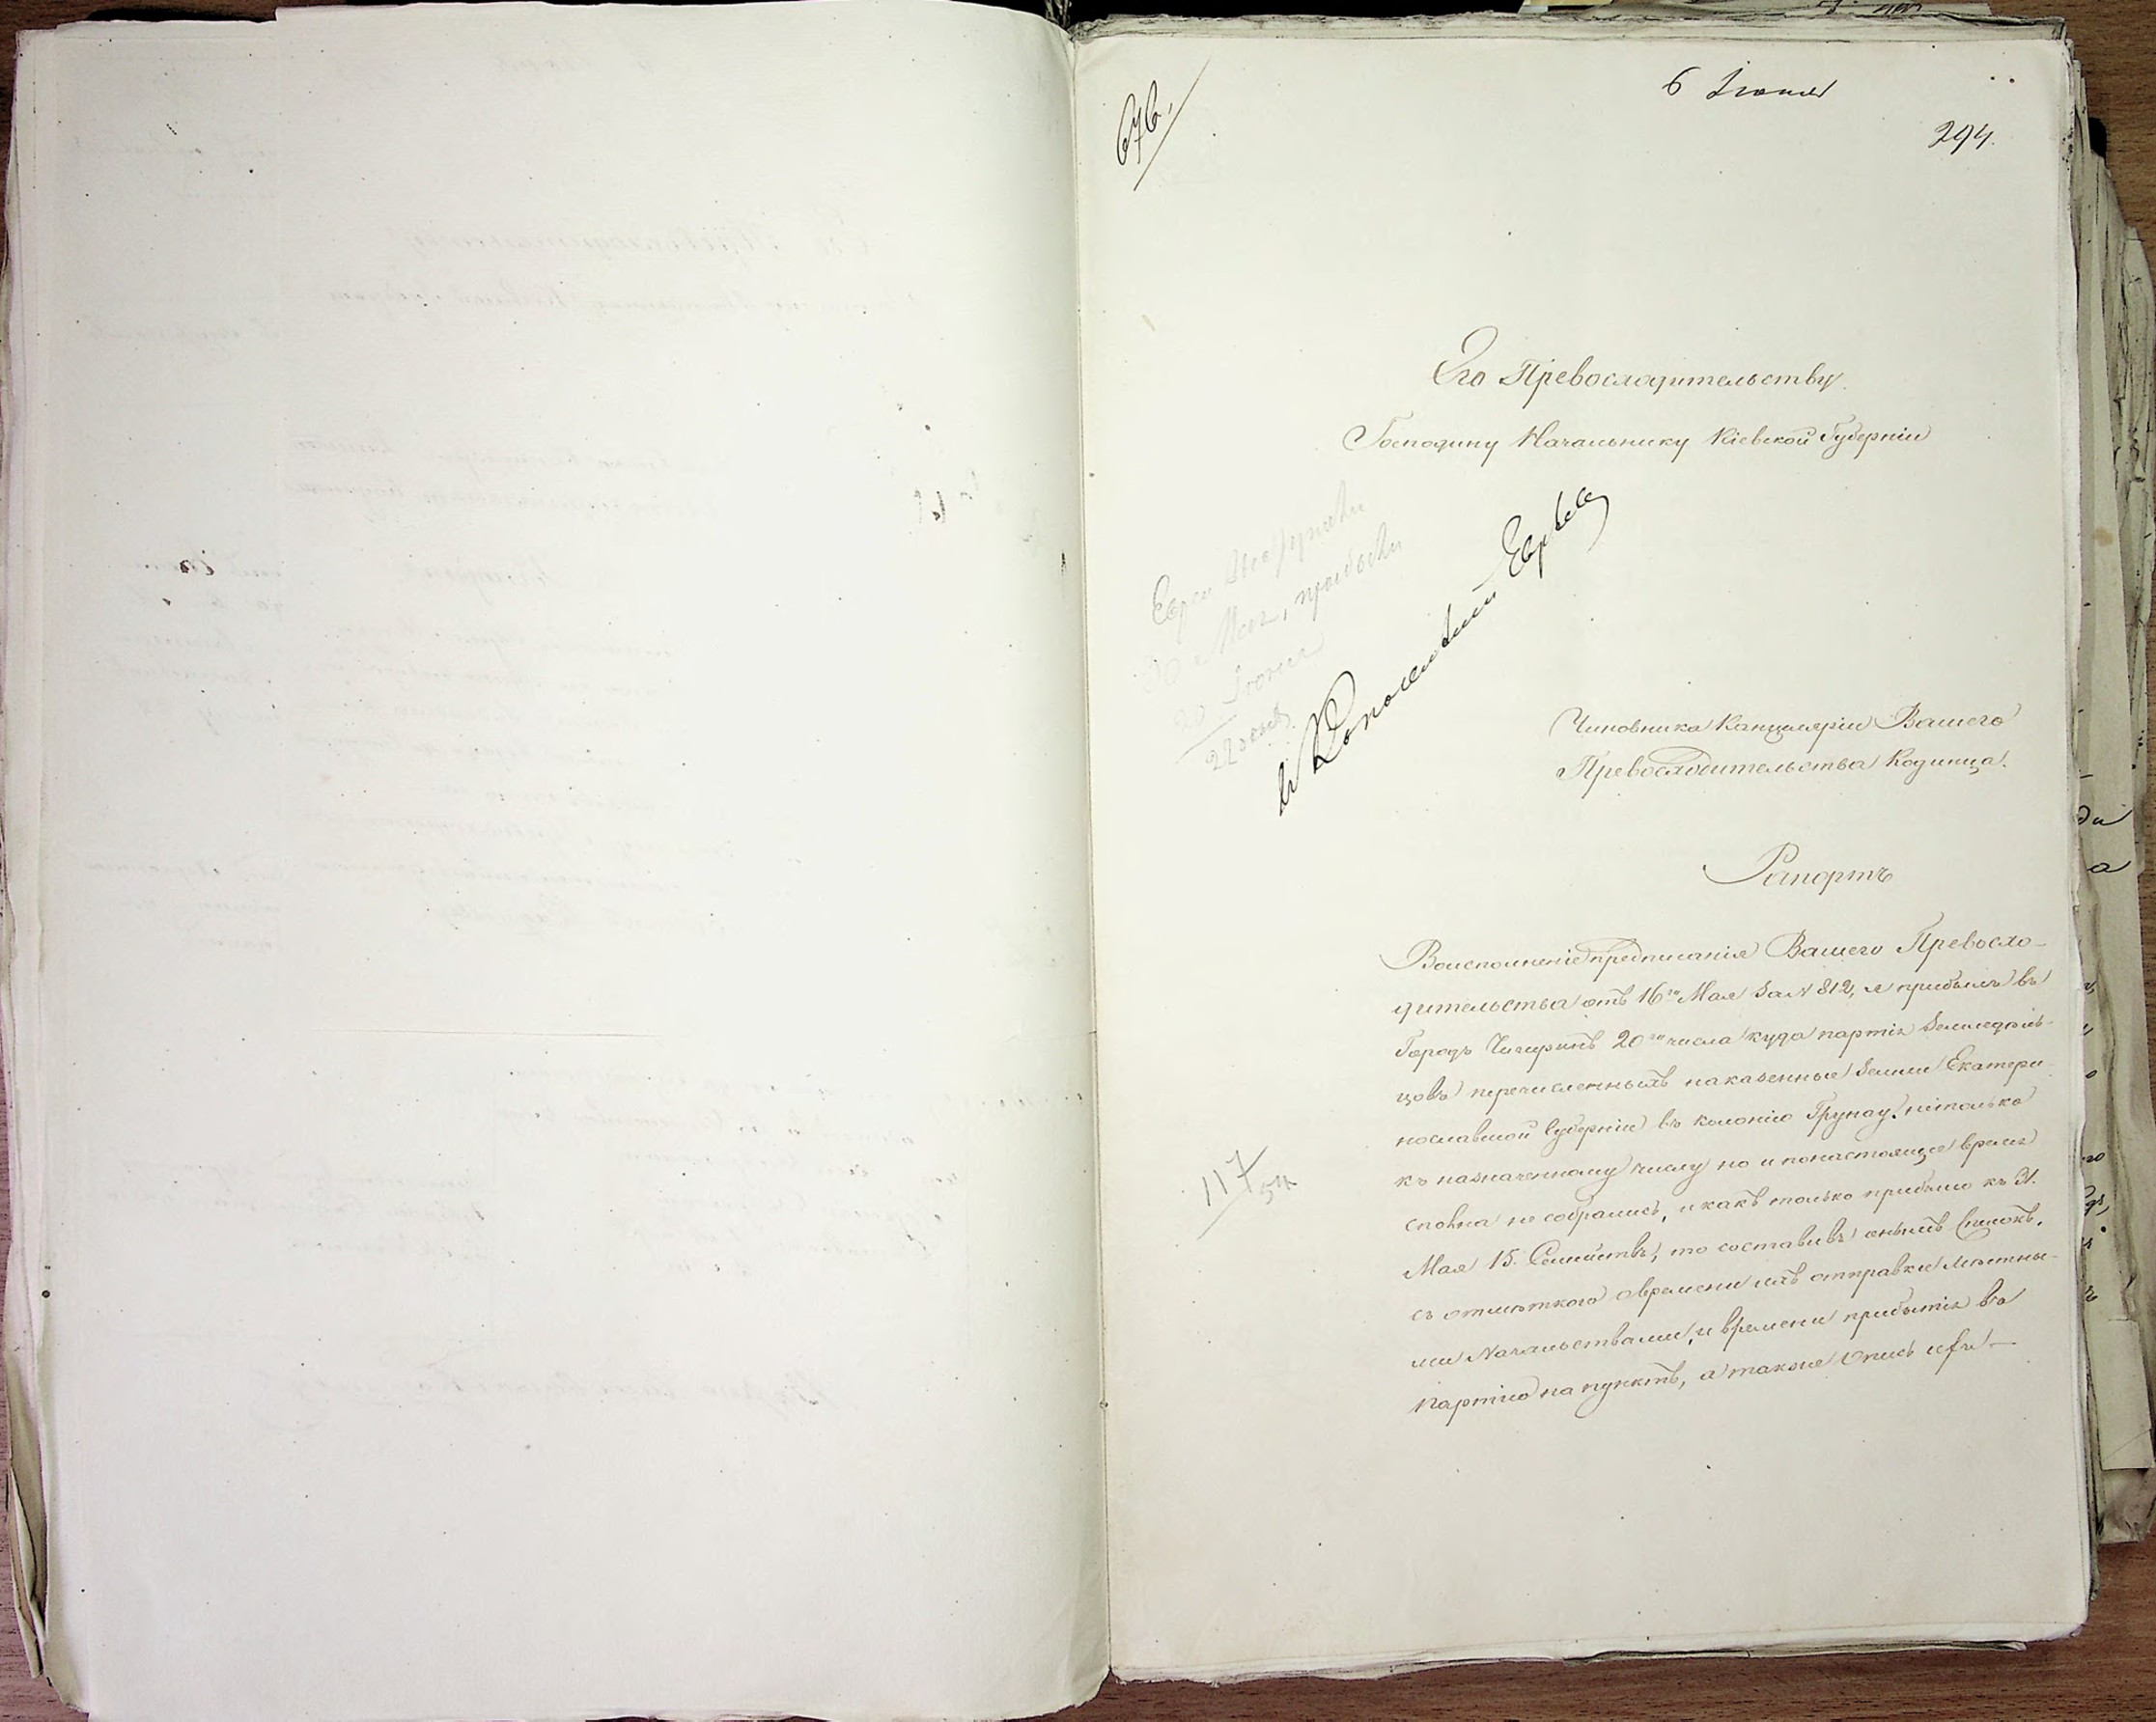 6 Іюня
294.
676.
Его Превосходительству
Господину Начальнику Кіевской Губерніи
Евреи
30 Мая, прибыли
20 Іюня
22
Евреевъ
Чиновника Канцеляріи Вашего
Превосходительства Кодинца.
Рапортъ
Воисполненіе предписанія Вашего Превосхо-
дительства отъ 16го Мая за N 812, я прибылъ въ
Городъ Чигиринъ 20го числа куда партія Земледѣль-
цовъ перечисленныхъ наказенные Земли Екатери
нославской Губерніи въ колонію Грунау. нетолько
къ назначенному числу но и понастоящее время
сполна не собрались, и какъ только прибыло къ 31.
Мая 15. Семействъ, то составивъ онымъ Списокъ,
съ отмѣткою овремени ихъ отправки мѣстны-
ми Начальствами, и времени прибытія въ
партію на пунктъ, а также Опись
117
54